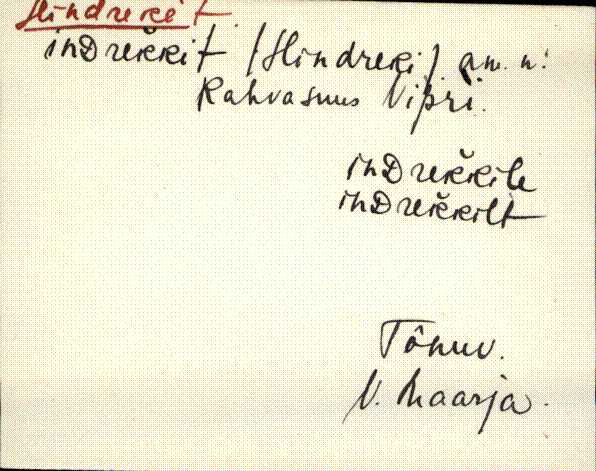 Hindreki t.
inDreǩkit /Hindreki/ am. n:
Rahvasuus Vipri.
inDreǩkile
inDreǩkilt
Tõnuv.
V. Maarja.